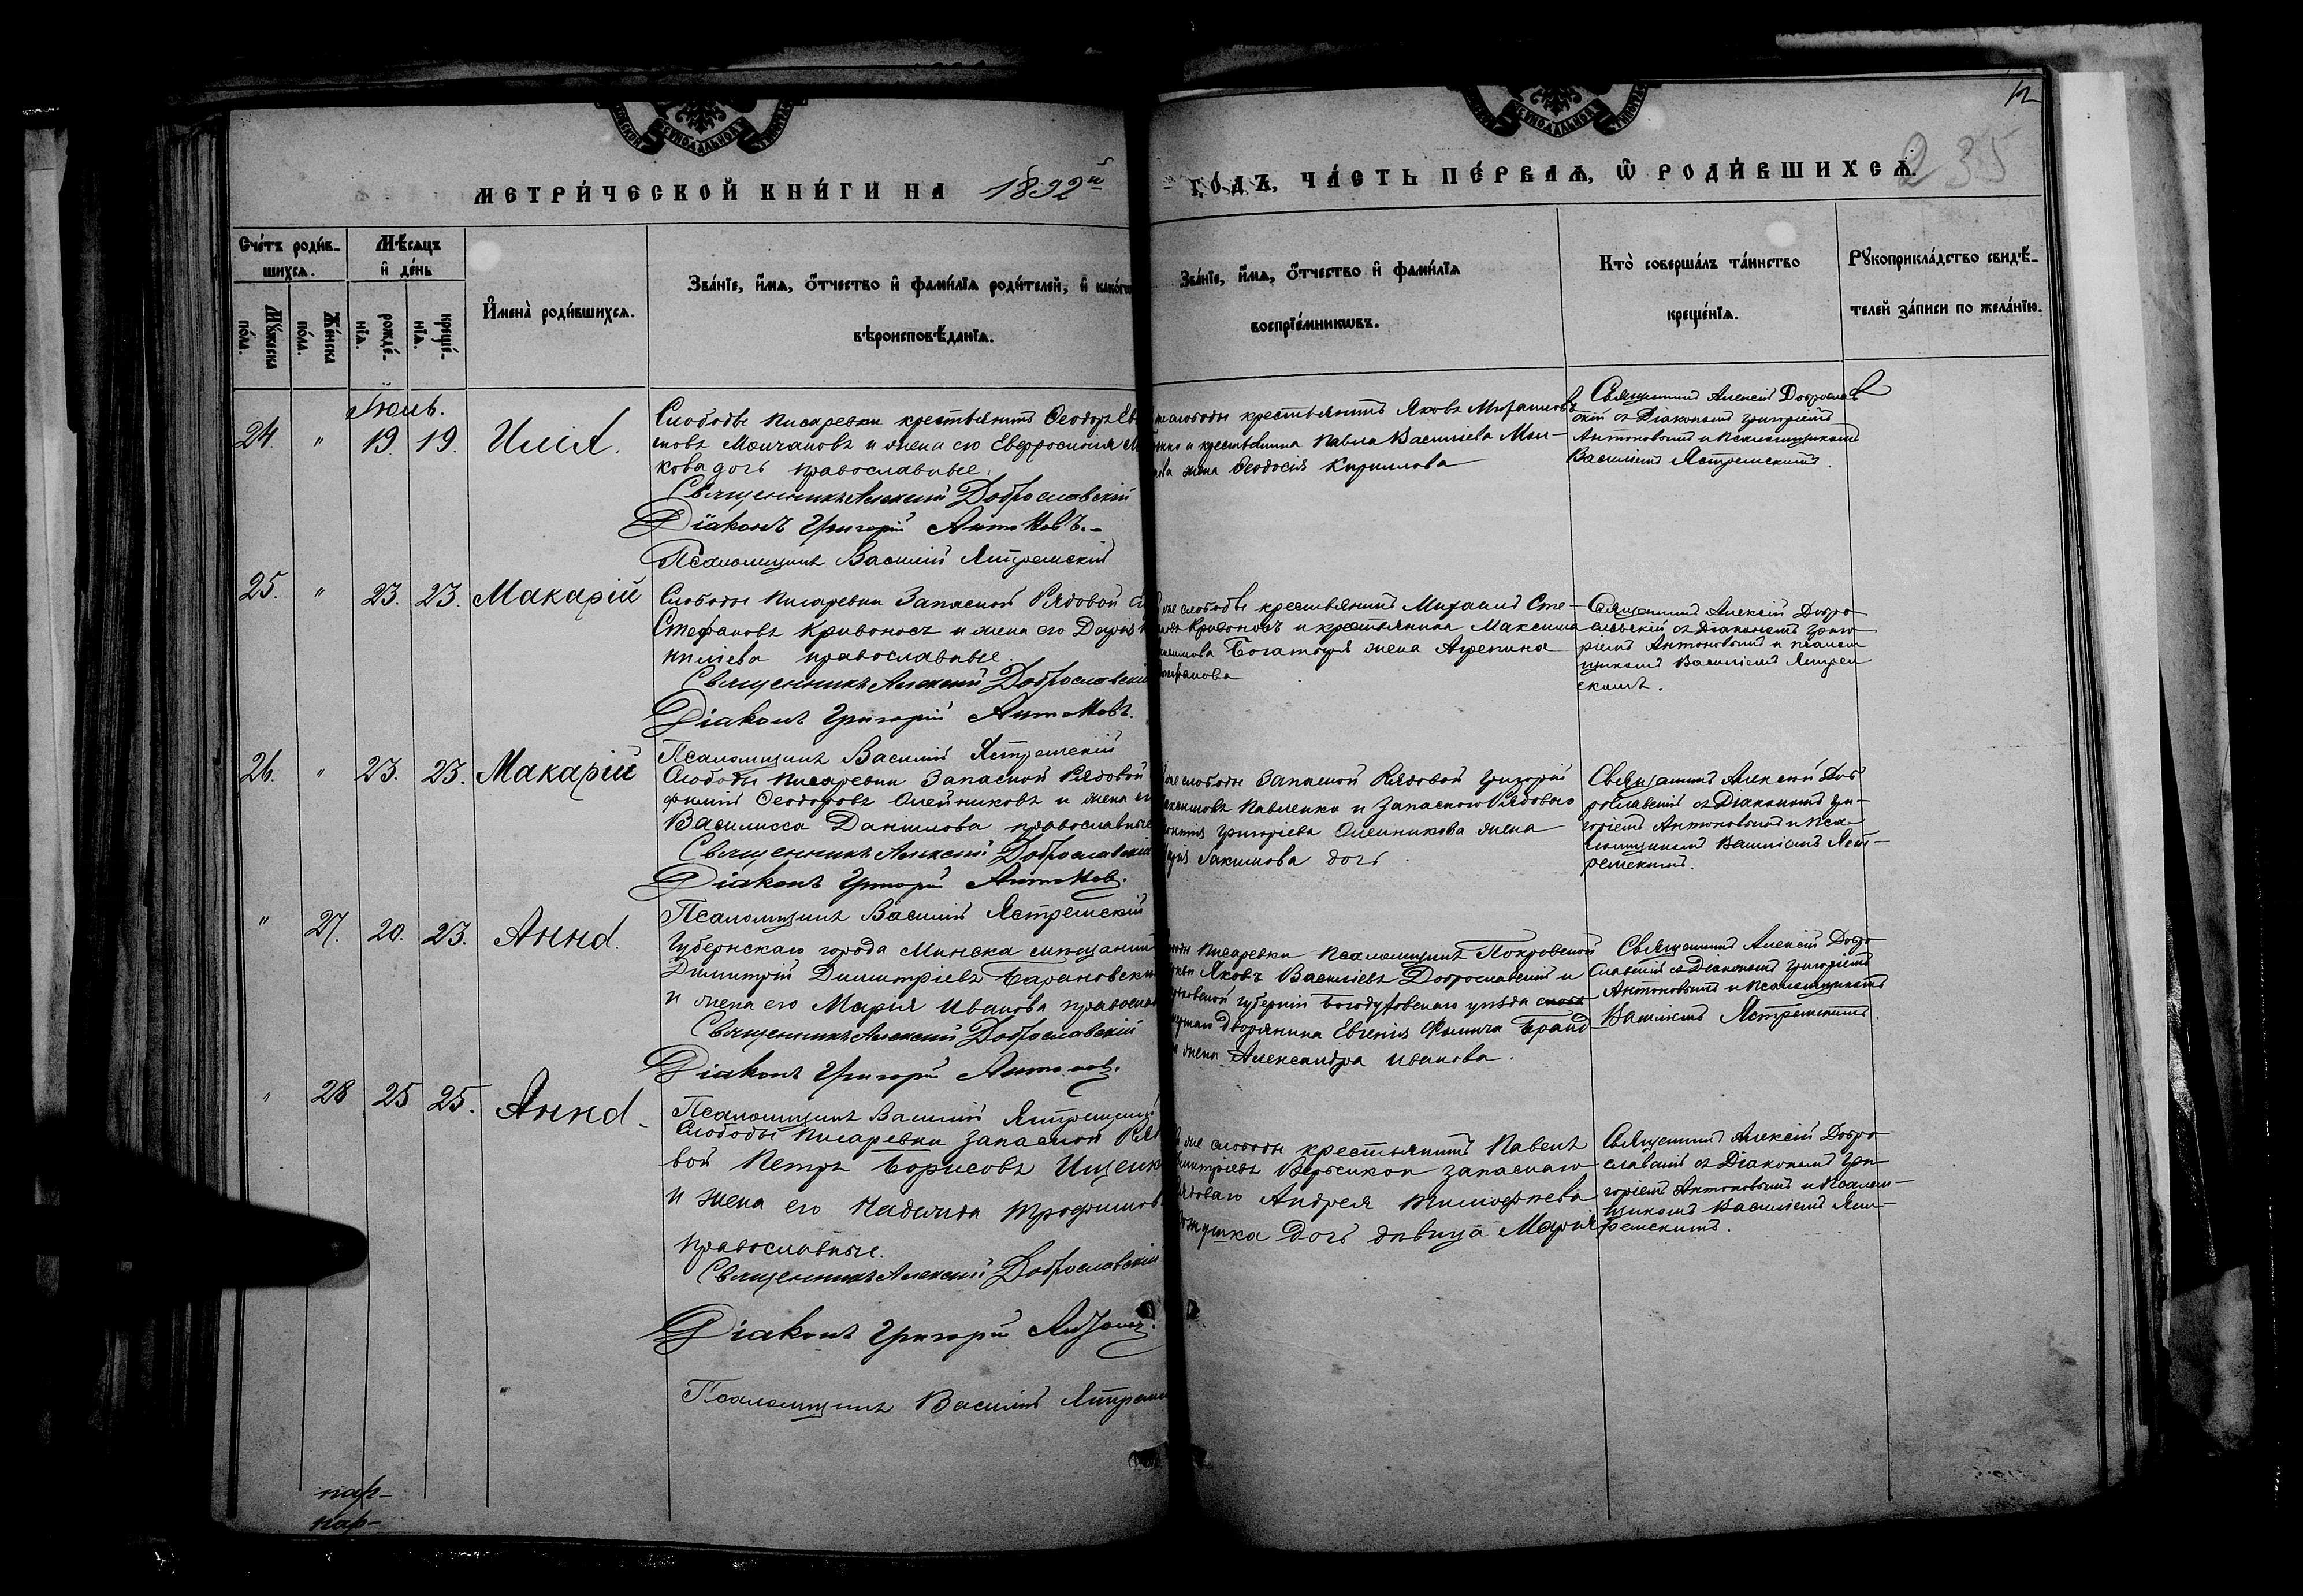 МЕТРИ́ЧЕСКОЙ КНИ́ГИ НА 1892й
ГО́ДЪ, ЧА́СТЬ ПЕ́РВАѦ, Ѡ҆ РОДИ́ВШИХСѦ.
12
235
Сче́тъ роди́в-
шихсѧ.
Мꙋ́жеска
по́ла.
Же́нска
по́ла.
Мѣ́сѧцъ
и҆ де́нь
рожде́-
нїѧ.
креще́-
нїѧ.
И҆мена̀ роди́вшихсѧ.
Зва́нїе, и҆́мѧ, ѻ҆́тчество и҆ фами́лїѧ роди́телей, и҆ како́гѡ
вѣроисповѣ́данїѧ.
Зва́нїе, и҆́мѧ, ѻ҆́тчество и҆ фами́лїѧ
воспрїе́мникѡвъ.
Кто̀ соверша́лъ та́инство
креще́нїѧ.
Рꙋкоприкла́дство свидѣ́-
телей за́писи по жела́нїю.
Іюль.
24. " 19. 19. Илія.
Слободы Писаревки крестьянинъ Ѳеодоръ
Молчановъ и жена его Евфросинія
кова дочь православные.
Священникъ Алексій Доброславскій
Діаконъ Григорій Антоновъ.
Псаломщикъ Василій Ястремскій
слободы крестьянинъ Яковъ
и крестьянина Павла Васильева Мол-
жена Ѳеодосія Кириллова
Священникъ Алексій Доброслав
скій съ Діакономъ Григоріемъ
Антоновымъ и Псаломщикомъ
Василіемъ Ястремскимъ.
25. " 23. 23. Макарій
Слободы Писаревки Запасной Рядовой
Стефановъ Кривоносъ и жена его Дарія
православные.
Священникъ Алексій Доброславскій
Діаконъ Григорій Антоновъ.
Псаломщикъ Василій Ястремскій
же слободы крестьянинъ Михаилъ Сте-
Кривоносъ и крестьянина Максима
Богатыря жена Агрепина
Священникъ Алексій Добро
славскій съ Діакономъ Григо
ріемъ Антоновымъ и псалом
щикомъ Василіемъ Ястрем
скимъ.
26. " 23. 23. Макарій
Слободы Писаревки Запасной Рядовой
Ѳеодоровъ Олейниковъ и жена его
Василисса Даніилова православные
Священникъ Алексій Доброславскій
Діаконъ Григорій Антоновъ.
Псаломщикъ Василій Ястремскій
же слободы Запасной Рядовой Григорій
Павленко и Запаснаго Рядоваго
Григоріева Олейникова жена
Іакимова дочь.
Священникъ Алексій Доб
рославскій съ Діакономъ Гри-
горіемъ Антоновымъ и Пса-
ломщикомъ Василіемъ Яст-
ремскимъ.
" 27. 20. 23. Анна.
Губернскаго города Минска мѣщанинъ
Димитрій Димитріевъ Барановскій
и жена его Марія Иванова
Священникъ Алексій Доброславскій
Діаконъ Григорій Антоновъ.
Псаломщикъ Василій Ястремскій
Писаревки Псаломщикъ Покровской
Яковъ Васильевъ Доброславскій и
губерніи Богодуховскаго уѣзда
дворянина Евгенія Фомича
жена Александра Иванова.
Священникъ Алексій Добро
славскій съ Діакономъ Григоріемъ
Антоновымъ и Псаломщикомъ
Василіемъ Ястремскимъ.
" 28 25 25. Анна.
Слободы Писаревки запасной Рядо
вой Петръ Борисовъ Ищенко
и жена его Надежда Трофимова
православные.
Священникъ Алексій Доброславскій
Діаконъ Григорій Антоновъ.
Псаломщикъ Василій
же слободы крестьянинъ Павелъ
запаснаго
Андрея Тимофѣева
дочь дѣвица Марія
Священникъ Алексій Добро
славскій съ Діакономъ Гри-
горіемъ Антоновымъ и Псалом-
щикомъ Василіемъ Яст-
ремскимъ.